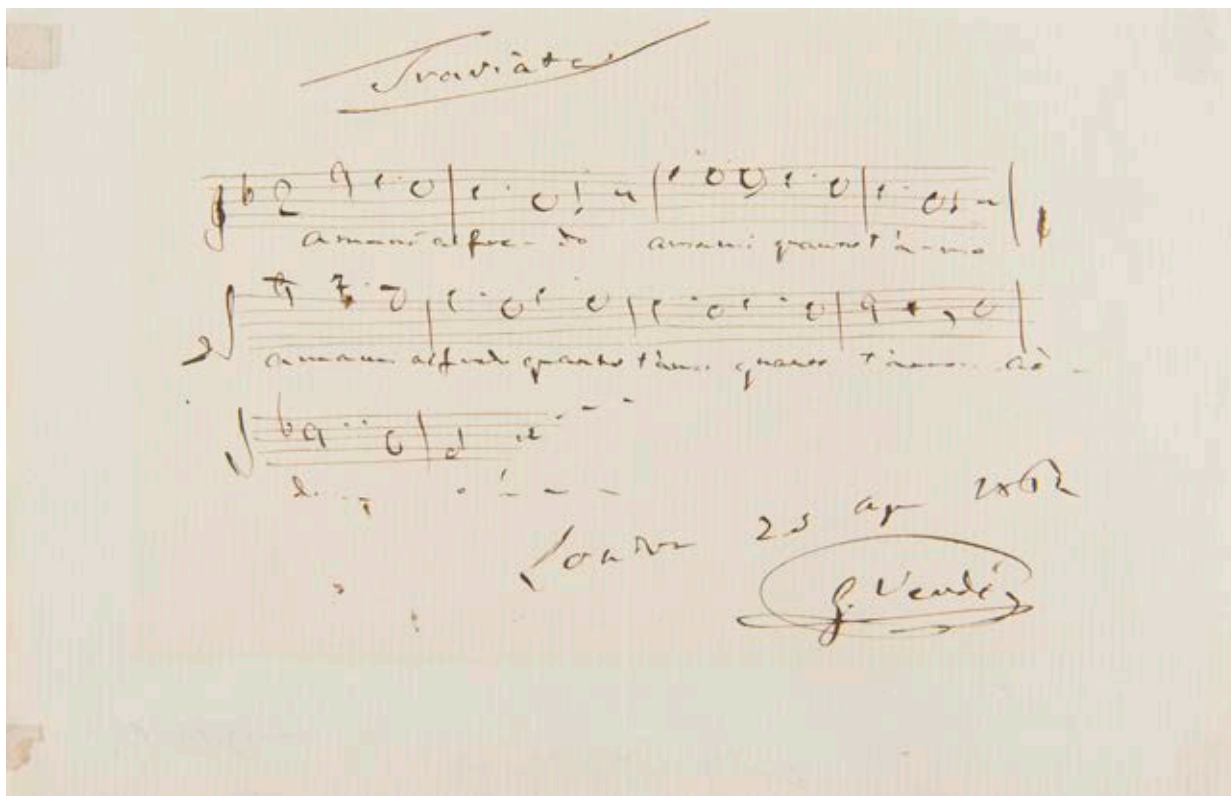 Traviata
amami alfre-do amami quant t'a-mo
amami alfredo quanto t'amo quanto t'amo
Londra 25 ap 1862
G. Verdi